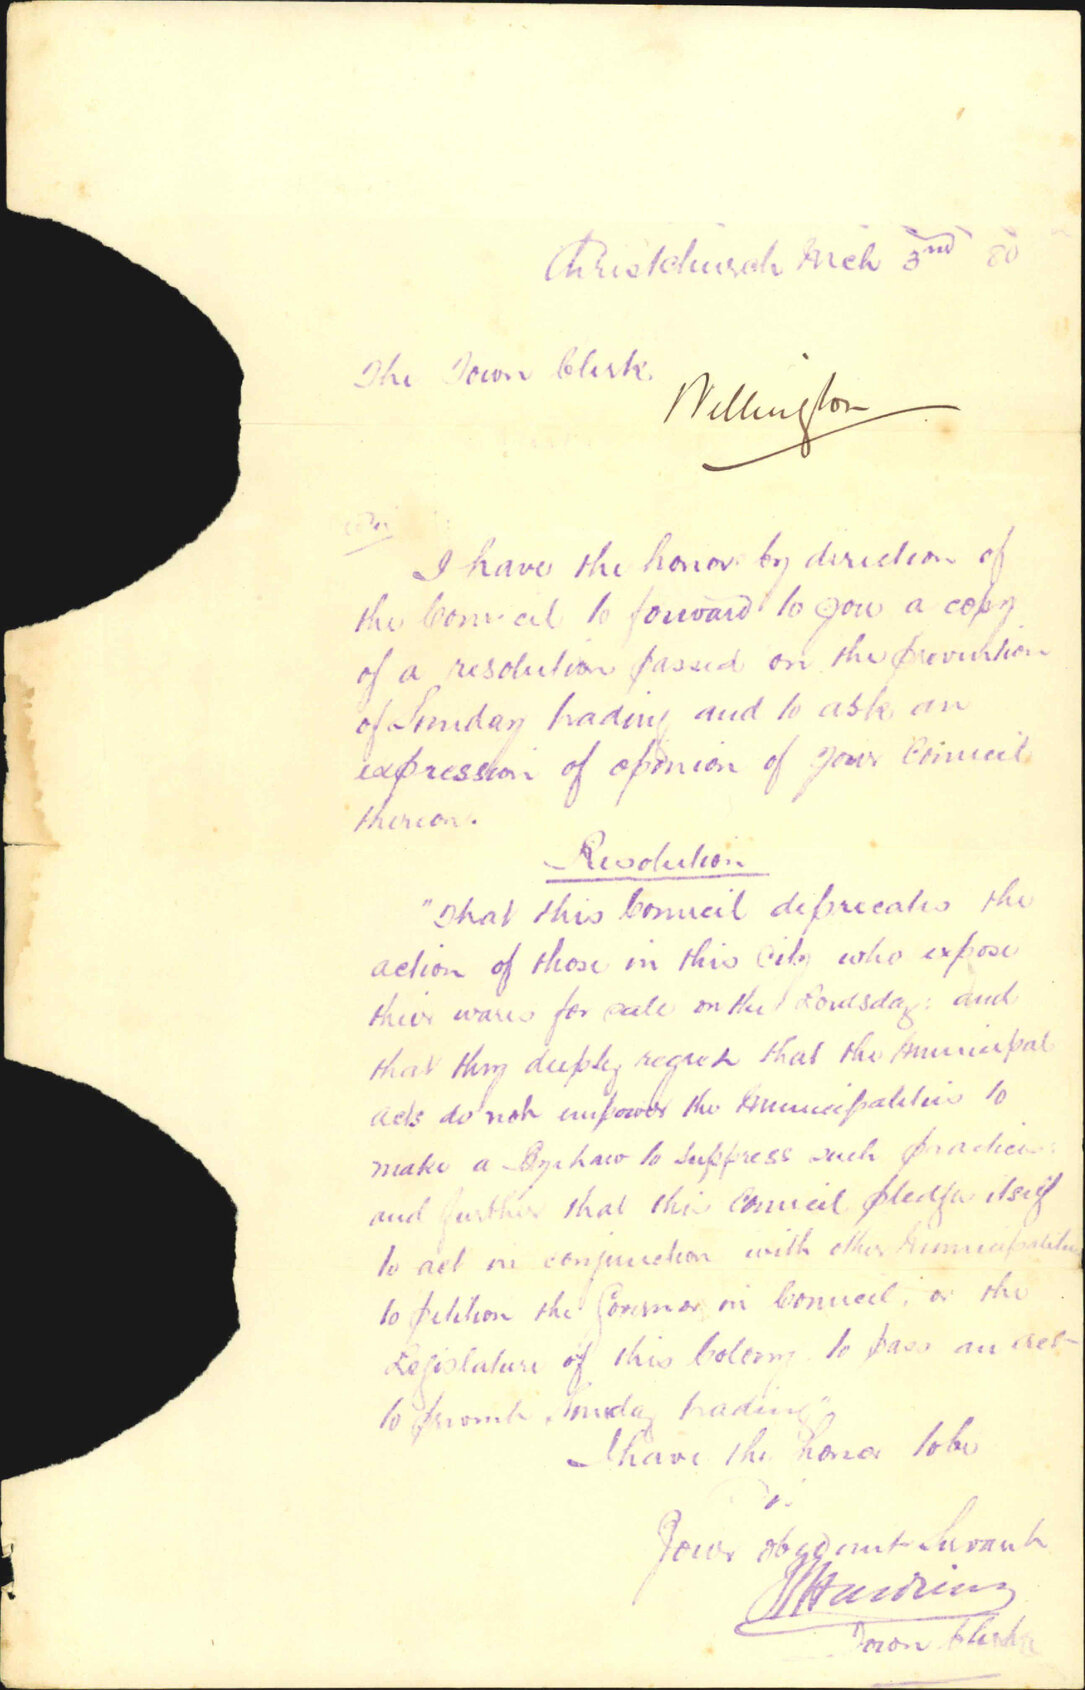 Christchurch Mch 3nd 80
The Town Clerk.
Wellington
I have the honor by direction of
the Council to forward to you a copy
of a resolution passed on the prevention
of Sunday trading and to ask an
expression of opinion of your Council
thereon.
Resolution
"That this Council deprecates the
action of those in this City who expose
their wares for sale on the Lordsday: and
that they deeply regret that the Municipal
acts do not empower the Municipalities to
make a Bye Law to suppress such practices:
and further that this Council pledges itself
to act in conjunction with other Municipalities
to petition the Governor in Council, or the
Legislature of this Colony to pass an act
to prevent Sunday trading"
I have the honor to be
Sir
Your obedient Servant
Town Clerk